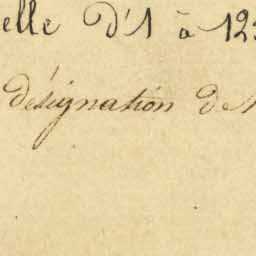 elle d'1 à 125
désignation de